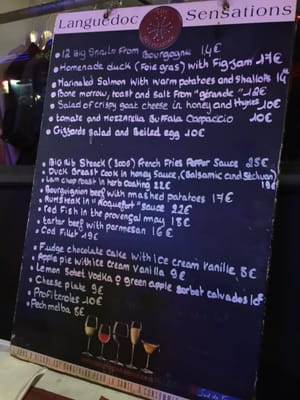 Languedoc Sensations
• 12 Big Snails From Bourgogne 14€
• Homemade duck (Foie gras) with Fig Jam 17€
• Marinated Salmon with warm potatoes and shallots 14€
• Bone morrow, toast and Salt from "gérande" 12€
• Salad of crispy goat cheese in honey and thymes 10€
• tomato and Mozzarella Buffala Carpaccio 10€
• Gizzards salad and Boiled egg 10€
• Big Rib Steack (300g) French Fries Pepper Sauce 25€
• Duck Breast Cook in honey Sauce, (Balsamic and Sechuan) 19€
• Lam chop roast in herb coating 22€
• Bourguignon beef with mashed potatoes 17€
• Rumsteak in "Roquefort" sauce 22€
• Red Fish in the provençal way 18€
• tartar beef with parmesan 16€
• Cod Fillet 19€
• Fudge chocolate cake with ice cream Vanille 8€
• Apple pie with ice cream Vanilla 9€
• Lemon Sorbet Vodka or green apple Sorbet calvados 10€
• Cheese plate 9€
• Profiteroles 10€
• Pech melba 8€